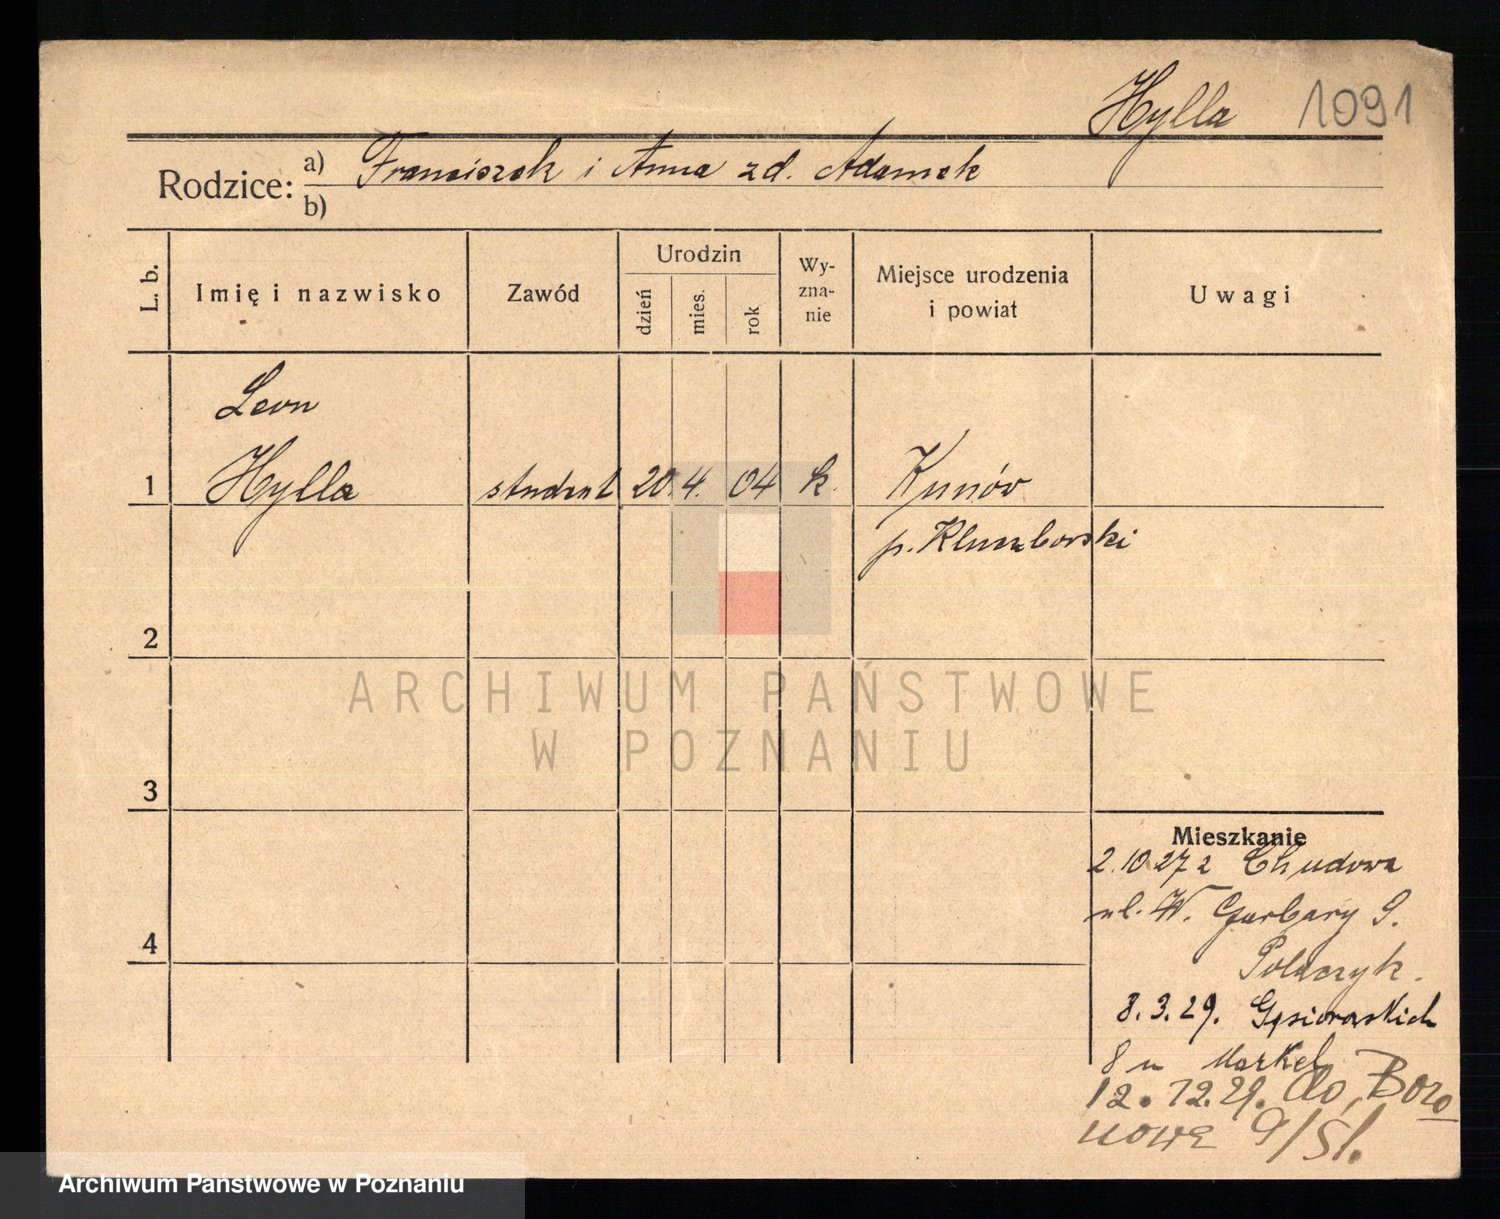 Hylla 1091
Rodzice: a) Franciszek i Anna zd. Adamek
b)
L. b.
Imię i nazwisko
Zawód
Urodzin
dzień
mies.
rok
Wy-
zna-
nie
Miejsce urodzenia
i powiat
Uwagi
Leon
1 Hylla student 20. 4. 04 k. Kunów
p. Kluczborski
2
ARCHIWUM PAŃSTWOWE
W POZNANIU
3
Mieszkanie
2.10.27 z Chudowa
ul. W. Garbary 9.
Polaczyk.
4
8.3.29. Gąsiorowskich
8 u Markel
12.12.29. do Boro
nowa G/Śl.
Archiwum Państwowe w Poznaniu